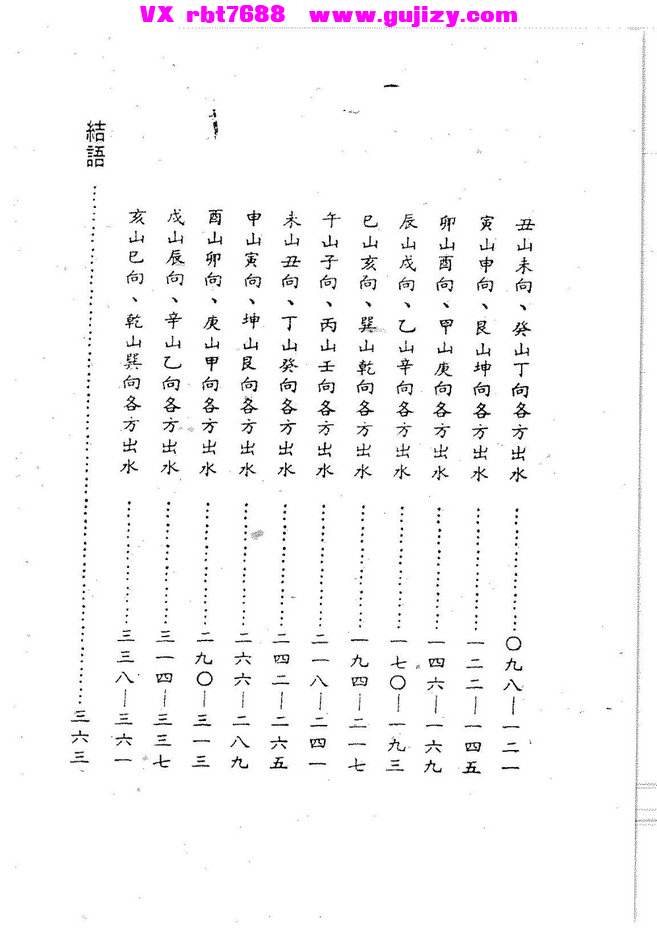 VX rbt7688 www.gujizy.com
丑山未向、癸山丁向各方出水……………〇九八—一二一
寅山申向、艮山坤向各方出水……………一二二—一四五
卯山酉向、甲山庚向各方出水……………一四六—一六九
辰山戌向、乙山辛向各方出水……………一七〇—一九三
巳山亥向、巽山乾向各方出水……………一九四—二一七
午山子向、丙山壬向各方出水……………二一八—二四一
未山丑向、丁山癸向各方出水……………二四二—二六五
申山寅向、坤山艮向各方出水……………二六六—二八九
酉山卯向、庚山甲向各方出水……………二九〇—三一三
戌山辰向、辛山乙向各方出水……………三一四—三三七
亥山巳向、乾山巽向各方出水……………三三八—三六一
結語……………三六三